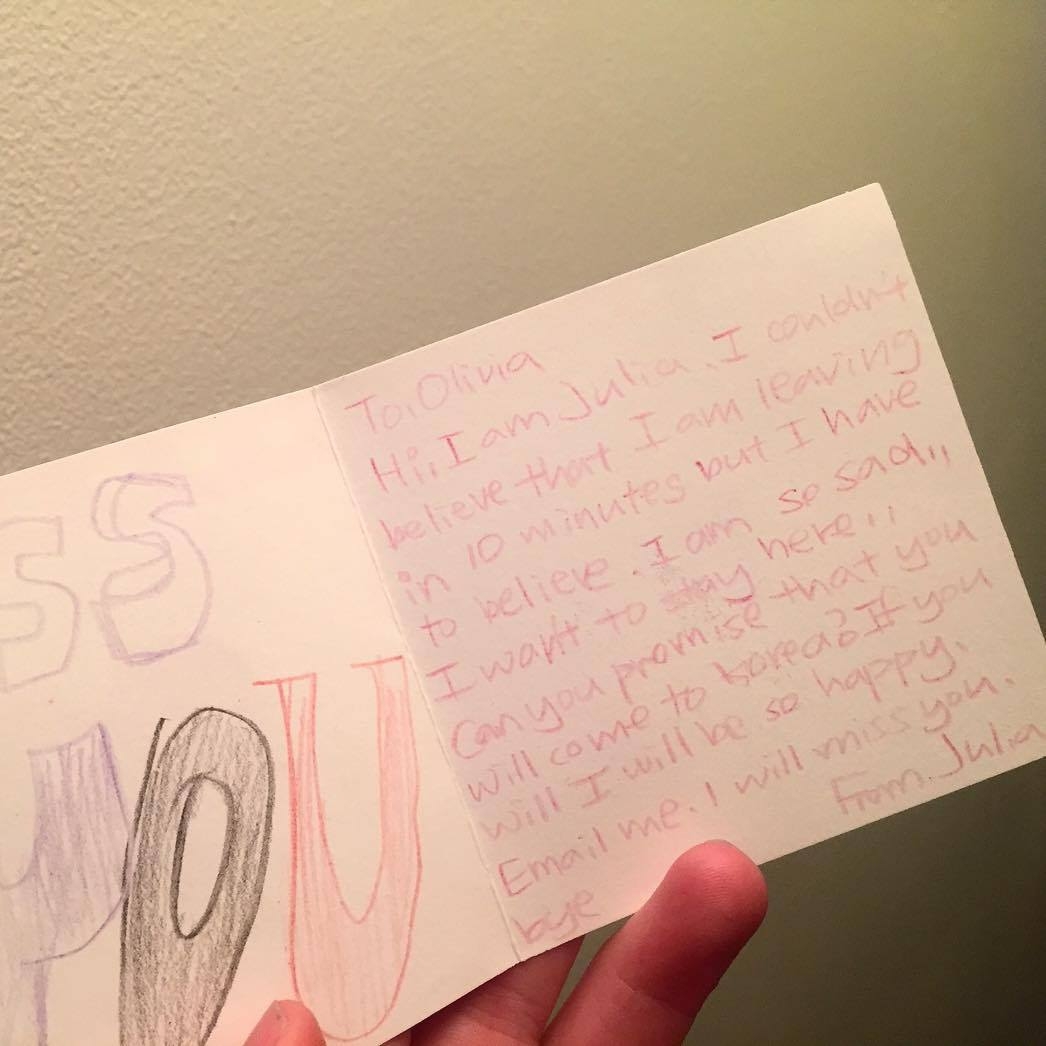 SS
YOU
To. Olivia
Hi,, I am Julia. I couldn't
believe that I am leaving
in 10 minutes but I have
to believe. I am so sad,,
I want to stay here,,
Can you promise that you
will come to korea? If you
will I will be so happy.
Email me. I will miss you.
From. Julia
bye